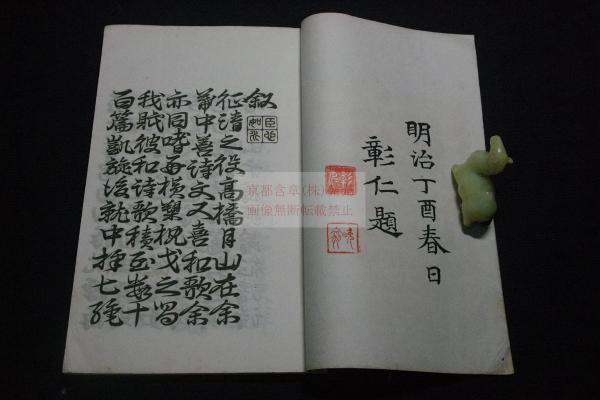 明治丁酉春日
彰仁題
叙
征清之役高橋月山在余
幕中喜詩文又喜和歌余
亦同嗜每横槊枕戈之間
我賦彼和詩歌積至数十
百篇凱旋後就中择七絶
京都含章(株)
画像無断転載禁止